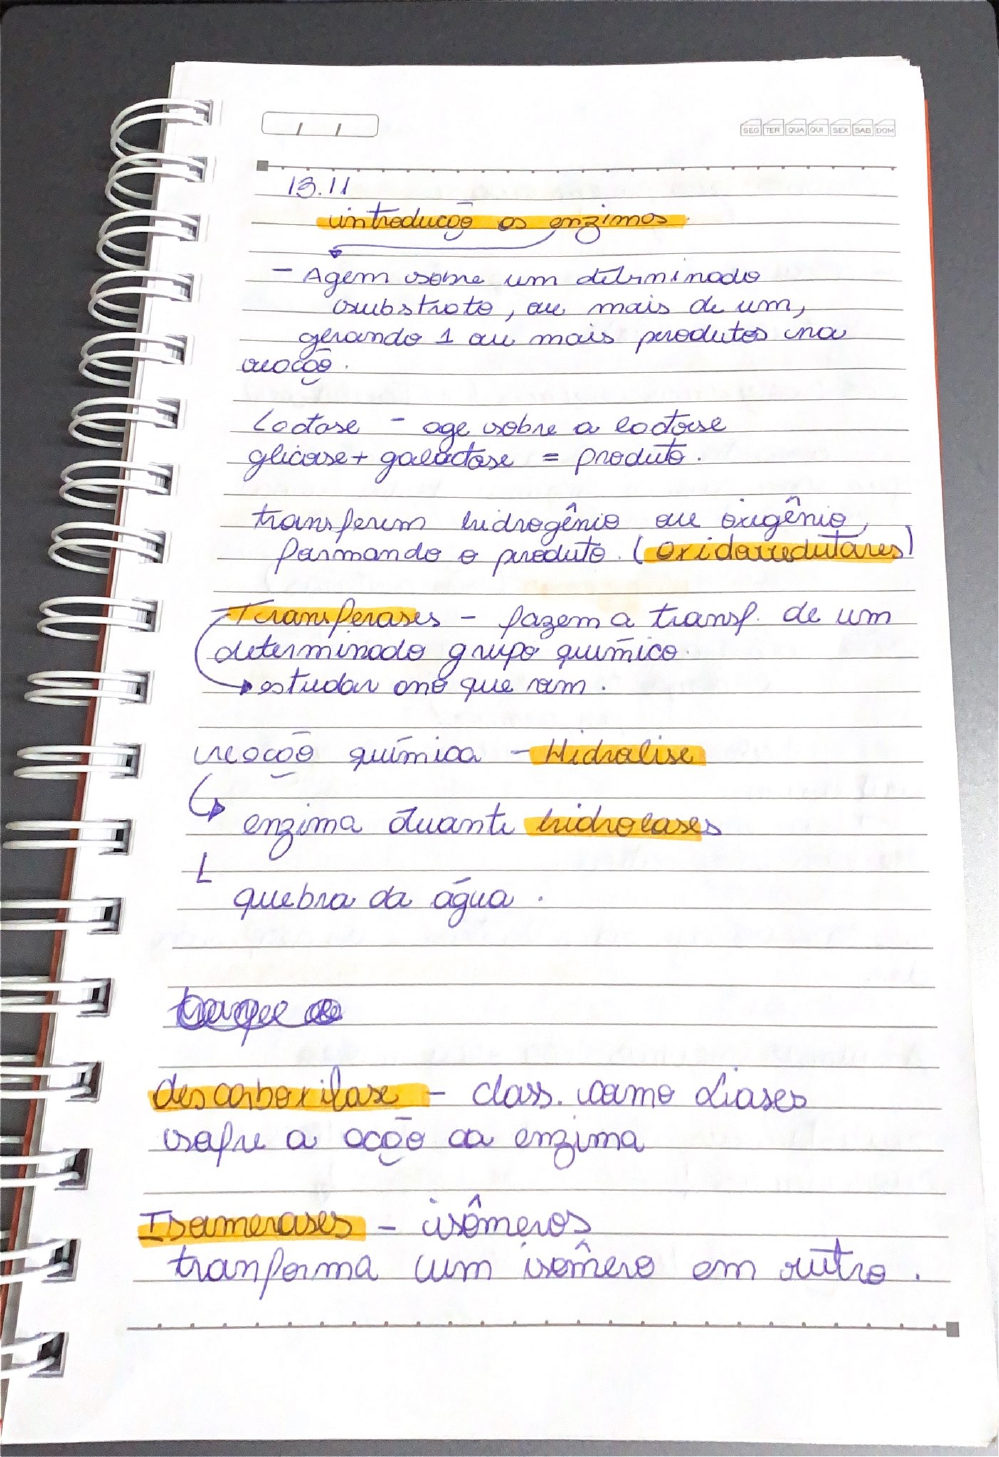 SEG TER QUA QUI SEX SAB DOM
13.11
introdução as enzimas
- Agem sobre um determinado
substrato, ou mais de um,
gerando 1 ou mais produtos na
reação.
Lactase - age sobre a lactose
glicose + galactose = produto.
transferem hidrogênio ou oxigênio,
formando o produto. (oxidorredutares)
Transferases - fazem a transf. de um
determinado grupo químico.
estudar ono que vem.
reação química - Hidrolise
enzima atuante hidrolases
quebra da água.
descarboxilase - class. como Liases
sofre a ação da enzima
Isomerases - isômeros
tranforma um isômero em outro.